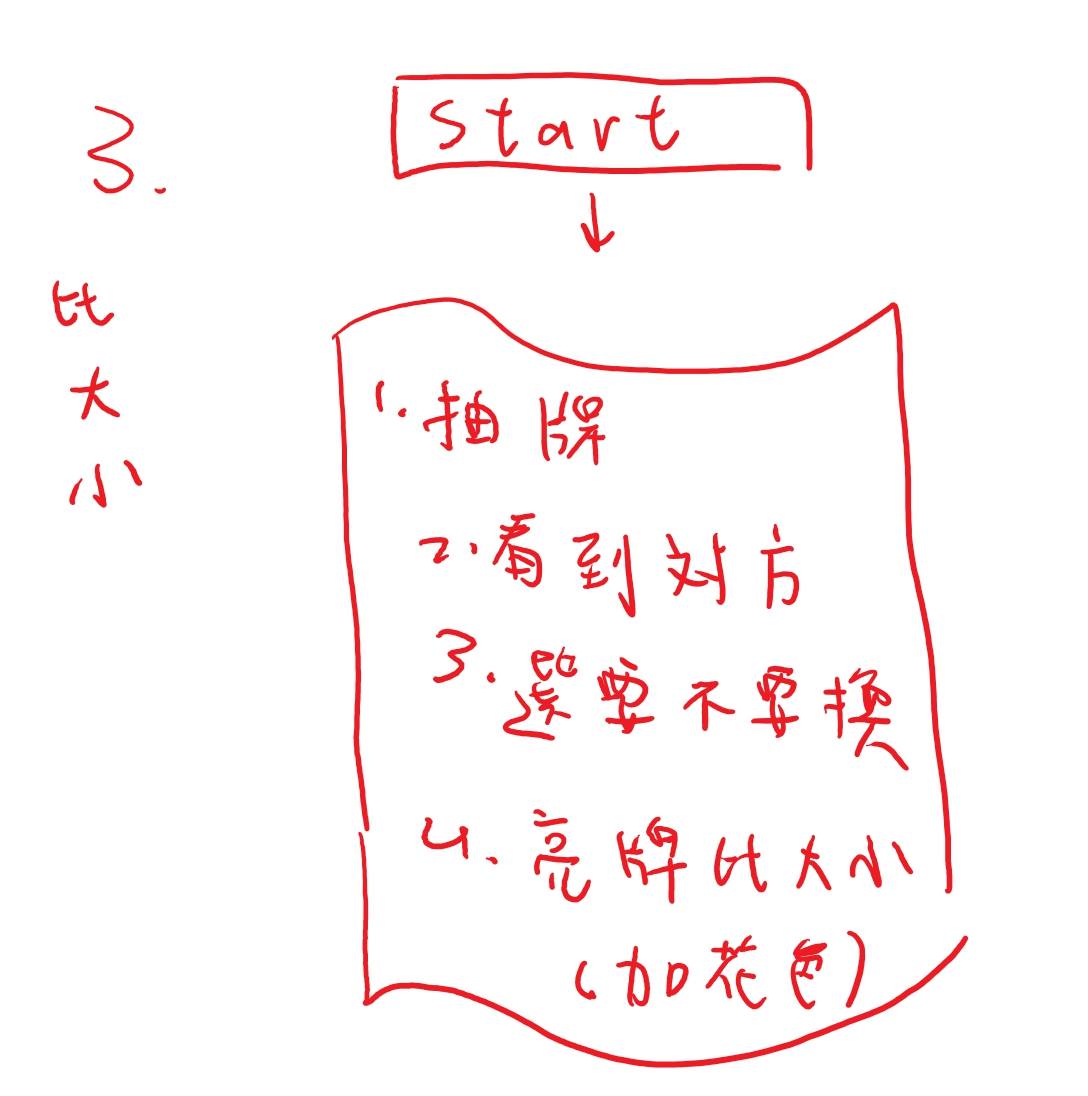 3.
比
大
小
Start
1. 抽牌
2. 看到对方
3. 選要不要換
4. 亮牌比大小
(加花色)